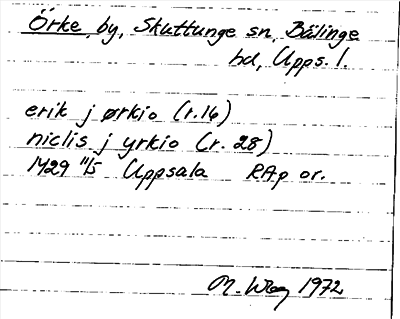 Örke by, Skuttunge sn, Bälinge
hd, Upps. l.
erik j ørkio (r.16)
niclis j yrkio (r. 28)
1429 11/5 Uppsala RAp or.
M. 1972